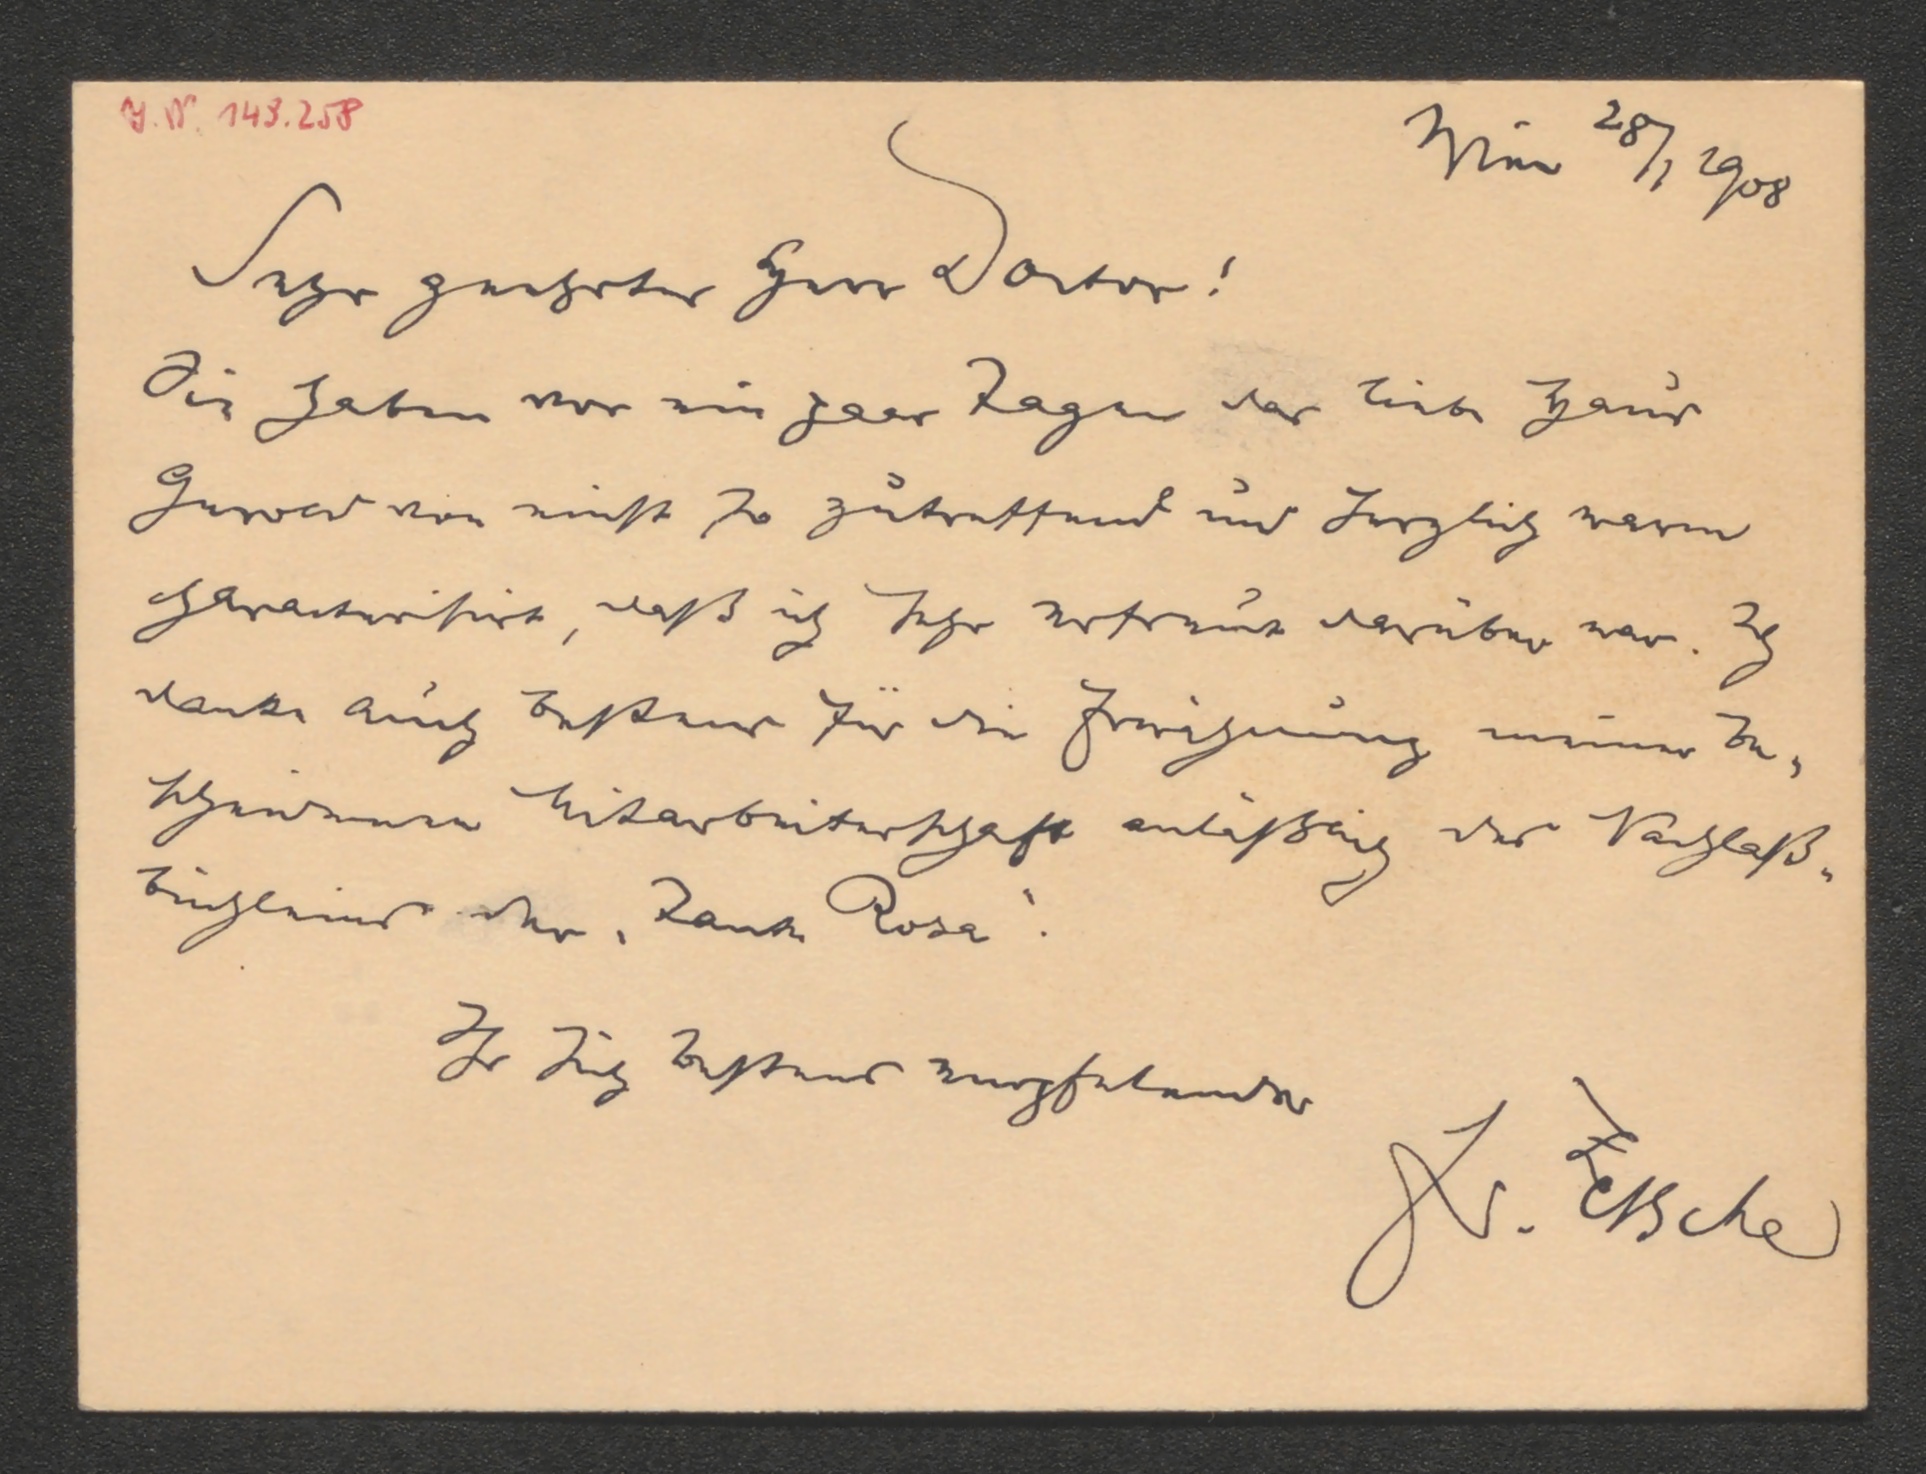 J.N. 143.258
Wien 28/1 1908
Sehr geehrter Herr Doctor!
Sie haben vor ein paar Tagen das liebe Haus
Gerold von einst so zutreffend und herzlich warm
characterisirt, daß ich sehr erfreut darüber war. Ich
danke auch bestens für die Erwähnung meiner be-
scheidenen Mitarbeiterschaft anläßlich des Nachlaß-
büchleins der „Tante Rosa".
Ihr sich bestens empfehlender